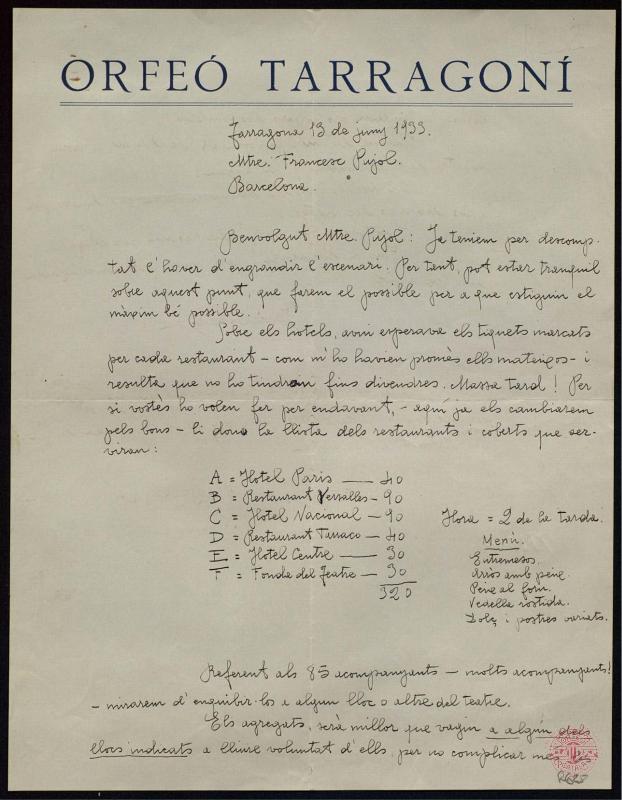 ORFEÓ TARRAGONÍ
Tarragona 13 de juny 1933.
Mtre. Francesc Pujol.
Barcelona.
Benvolgut Mtre Pujol: Ja teniem per descomp-
tat l'haver d'engrandir l'escenari. Per tant, pot estar tranquil
sobre aquest punt, que farem el possible per a que estiguin el
màxim bé possible.
Sobre els hotels, avui esperava els tiquets marcats
per cada restaurant - com m'ho havien promès ells mateixos - i
resulta que no ho tindran fins divendres. Massa tard! Per
si vostès ho volen fer per endavant, - aquí ja els cambiarem
pels bons - li dono la llista dels restaurants i coberts que ser-
viran:
A = Hotel Paris — 40
B = Restaurant Versalles - 90
C = Hotel Nacional — 90
D = Restaurant Tarraco — 40
E = Hotel Centre — 30
F = Fonda del Teatre — 30
320
Hora = 2 de la tarda.
Menú.
Entremesos.
Arròs amb peix.
Peix al forn.
Vedella rostida.
Dolç i postres variats.
Referent als 85 acompanyants - molts acompanyants!
- mirarem d'enquibir-los a algun lloc o altre del teatre.
Els agregats, serà millor que vagin a algún dels
llocs indicats a lliure voluntat d'ells, per no complicar més